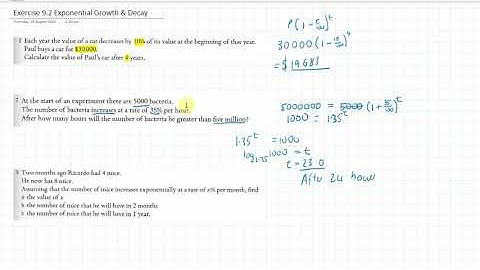 Exercise 9.2 Exponential Growth & Decay
1 Each year the value of a car decreases by 10% of its value at the beginning of that year.
Paul buys a car for $30000.
Calculate the value of Paul's car after 4 years.
P(1 - r/100)^t
30000(1 - 10/100)^4
= $19683
2 At the start of an experiment there are 5000 bacteria.
The number of bacteria increases at a rate of 35% per hour.
After how many hours will the number of bacteria be greater than five million?
5000000 = 5000(1 + 35/100)^t
1000 = 1.35^t
1.35^t = 1000
log1.35 1000 = t
t = 23.0
After 24 hours
3 Two months ago Ricardo had 4 mice.
He now has 8 mice.
Assuming that the number of mice increases exponentially at a rate of x% per month, find
a the value of x
b the number of mice that he will have in 2 months
c the number of mice that he will have in 1 year.